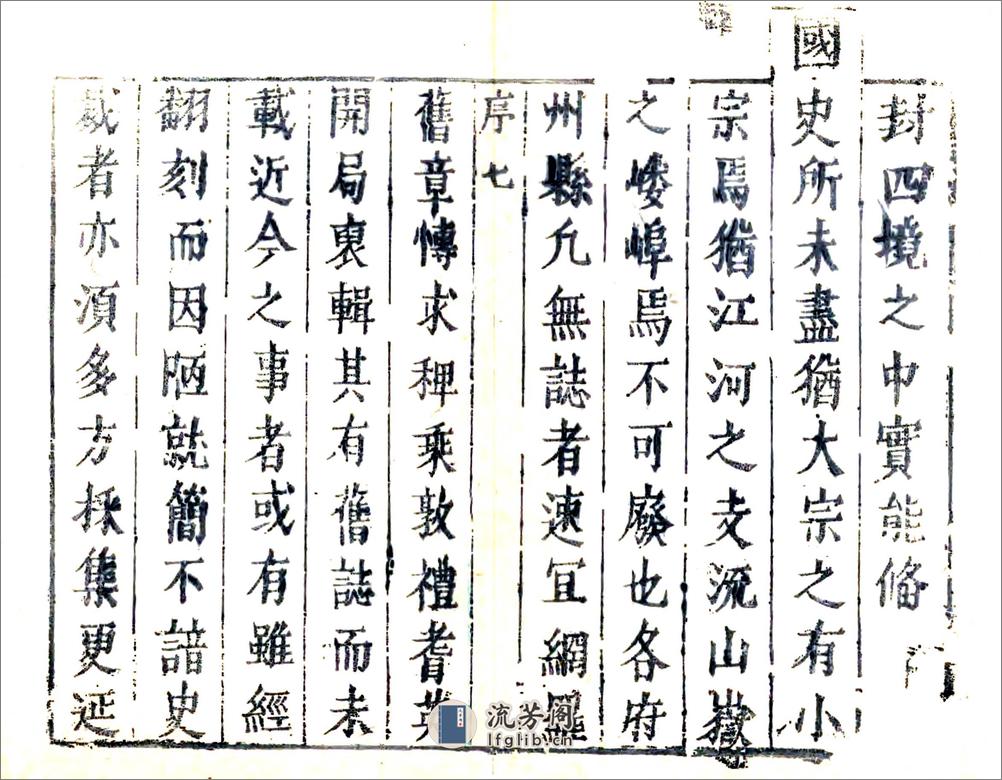 封四境之中實能俻
國史所未盡猶大宗之有小
宗焉猶江河之支流山嶽
之嶁㟝焉不可廢也各府
州縣凢無誌者速冝網羅
序 七
舊章愽求稗乘敦禮耆英
開局裒輯其有舊誌而未
載近今之事者或有雖經
翻刻而因陋就簡不諳史
裁者亦湏多方採集更延
流芳阁
lfglib.cn